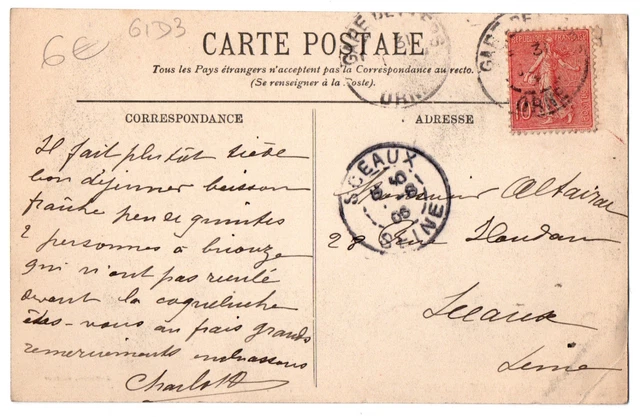 6€ 61D3
CARTE POSTALE
Tous les Pays étrangers n'acceptent pas la Correspondance au recto.
(Se renseigner à la Poste).
CORRESPONDANCE
ADRESSE
GARE DE
ORNE
GARE DE
ORNE
10
SCEAUX
SEINE
Il fait plutôt tiède
bon déjeuner boisson
fraîche pas de
2 personnes à briouze
qui n'ont pas reculé
devant la coqueluche
êtes-vous au frais grands
remerciements embrassons
Charlott
Monsieur Altairac
28 Rue Houdan
Sceaux
Seine